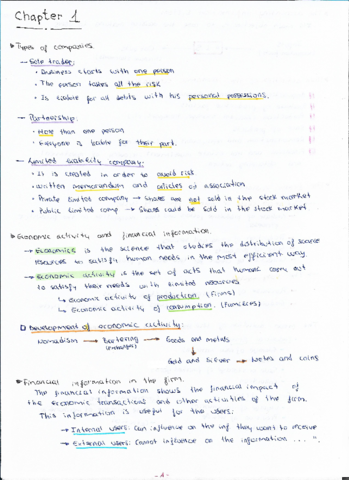 Chapter 1
Types of companies
— Sole trader:
• Business starts with one person
• The person takes all the risk
• Is liable for all debts with his personal possessions.
— Partnership:
• More than one person
• Everyone is liable for their part.
— Limited liability company:
• It is created in order to avoid risk
• Written memorandum and articles of association
• Private limited company → Share are not sold in the stock market
• Public limited comp → Share could be sold in the stock market
Economic activity and financial information.
→ Economics is the science that studies the distribution of scarce
resources to satisfy human needs in the most efficient way
→ Economic activity is the set of acts that humans carry out
to satisfy their needs with limited resources
↳ Economic activity of production (Firms)
↳ Economic activity of consumption (Families)
Development of economic activity:
Nomadism → Bartering → Goods and metals
(exchange)
↓
Gold and Silver → Notes and coins
Financial information in the firm.
The financial information shows the financial impact of
the economic transactions and other activities of the firm.
This information is useful for the users:
→ Internal users: Can influence on the inf they want to receive
→ External users: Cannot influence on the information ... ".
- 1 -